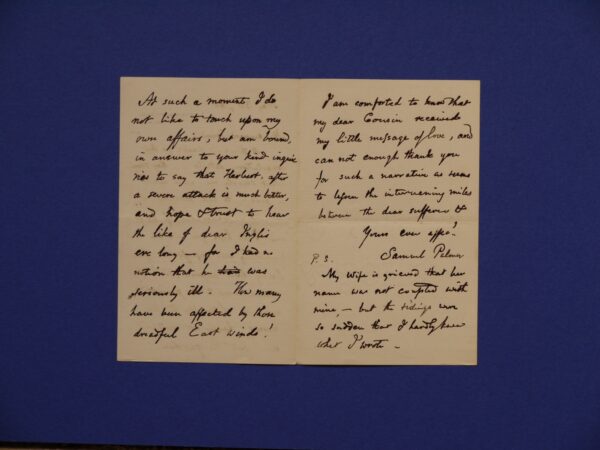 At such a moment I do
not like to touch upon my
own affairs, but am bound,
in answer to your kind inquir
ies to say that Herbert, after
a severe attack is much better,
and hope & trust to hear
the like of dear Inglis
ere long — for I had no
notion that he was
seriously ill. How many
have been affected by these
dreadful East winds!
I am comforted to know that
my dear Cousin received
my little message of love, and
can not enough thank you
for such a narrative as seems
to lessen the intervening miles
between the dear sufferer &
Yours ever affec.
Samuel Palmer
P.S.
My Wife is grieved that her
name was not coupled with
mine, — but the tidings were
so sudden that I hardly knew
what I wrote —